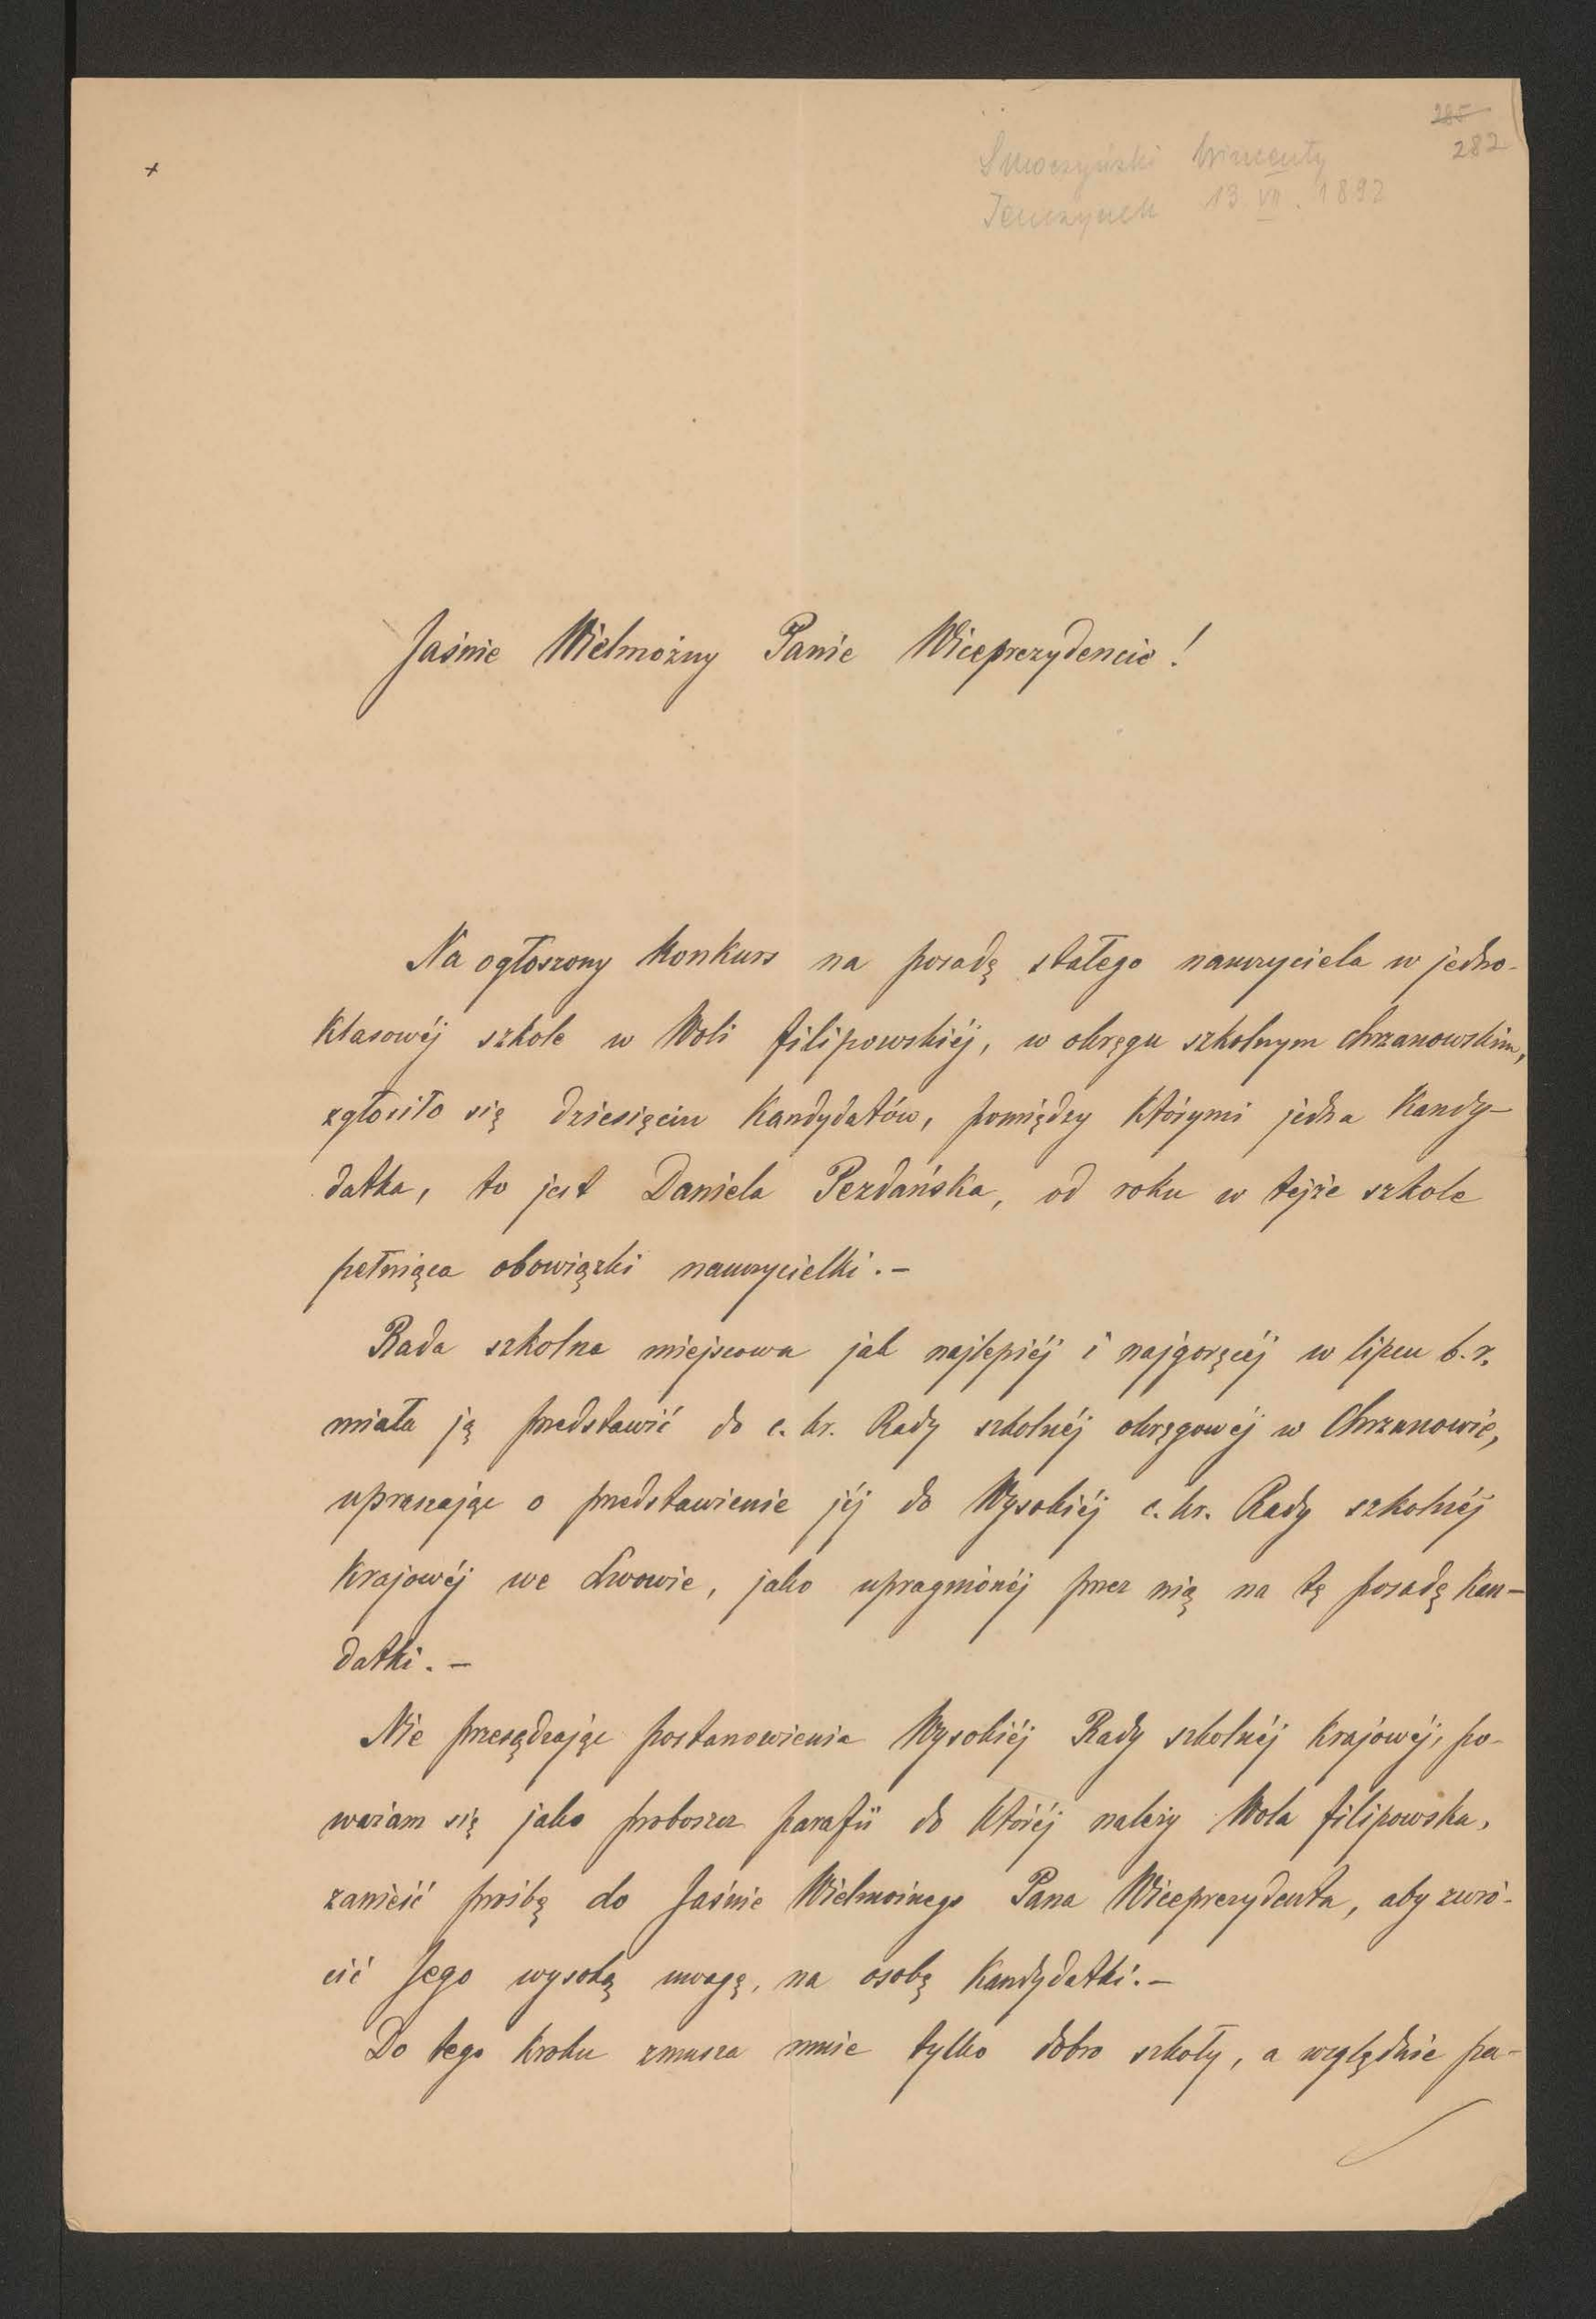 285
282
Smoczyński Wincenty
Tenczynek 13 VII. 1892
Jaśnie Wielmożny Panie Wiceprezydencie!
Na ogłoszony Konkurs na posadę stałego nauczyciela w jedno-
klasowéj szkole w Woli filipowskiéj, w okręgu szkolnym chrzanowskim,
zgłosiło się dziesięciu Kandydatów, pomiędzy którymi jedna Kandy-
datka, to jest Daniela Pezdańska, od roku w tejże szkole
pełniąca obowiązki nauczycielki. –
Rada szkolna miejscowa jak najlepiéj i najgoręcéj w lipcu b. r.
miała ją przedstawić do c. kr. Rady szkolnéj okręgowéj w Chrzanowie,
upraszając o przedstawienie jéj do Wysokiéj c. kr. Rady szkolnéj
Krajowéj we Lwowie, jako upragnionéj przez nią na tę posadę Kan-
datki. –
Nie przesądzając postanowienia Wysokiéj Rady szkolnéj Krajowéj, po-
ważam się jako proboszcz parafii do któréj należy Wola filipowska,
zanieść prośbę do Jaśnie Wielmożnego Pana Wiceprezydenta, aby zwró-
cić Jego wysoką uwagę, na osobę Kandydatki. –
Do tego kroku zmusza mnie tylko dobro szkoły, a względnie pa-